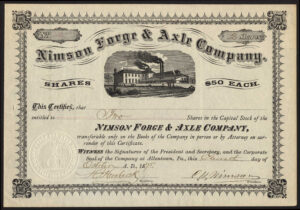 Nimson Forge & Axle Company,
SHARES
$50 EACH.
This Certifies, that
entitled to Two Shares in the Capital Stock of the
NIMSON FORGE & AXLE COMPANY,
transferable only on the Books of the Company in person or by Attorney on surrender of this Certificate.
WITNESS the Signatures of the President and Secretary, and the Corporate
Seal of the Company at Allentown, Pa., this day of
A. D. 18